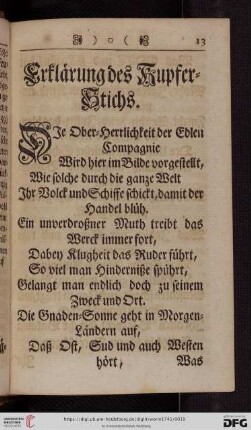 13
Erklärung des Kupfer-
Stichs.
Die Ober-Herrlichkeit der Edlen
Compagnie
Wird hier im Bilde vorgestellt,
Wie solche durch die ganze Welt
Ihr Volck und Schiffe schickt, damit der
Handel blüh.
Ein unverdroßner Muth treibt das
Werck immer fort,
Dabey Klugheit das Ruder führt,
So viel man Hinderniße spührt,
Gelangt man endlich doch zu seinem
Zweck und Ort.
Die Gnaden-Sonne geht in Morgen-
Ländern auf,
Daß Ost, Sud und auch Westen
hört,
Was
DFG